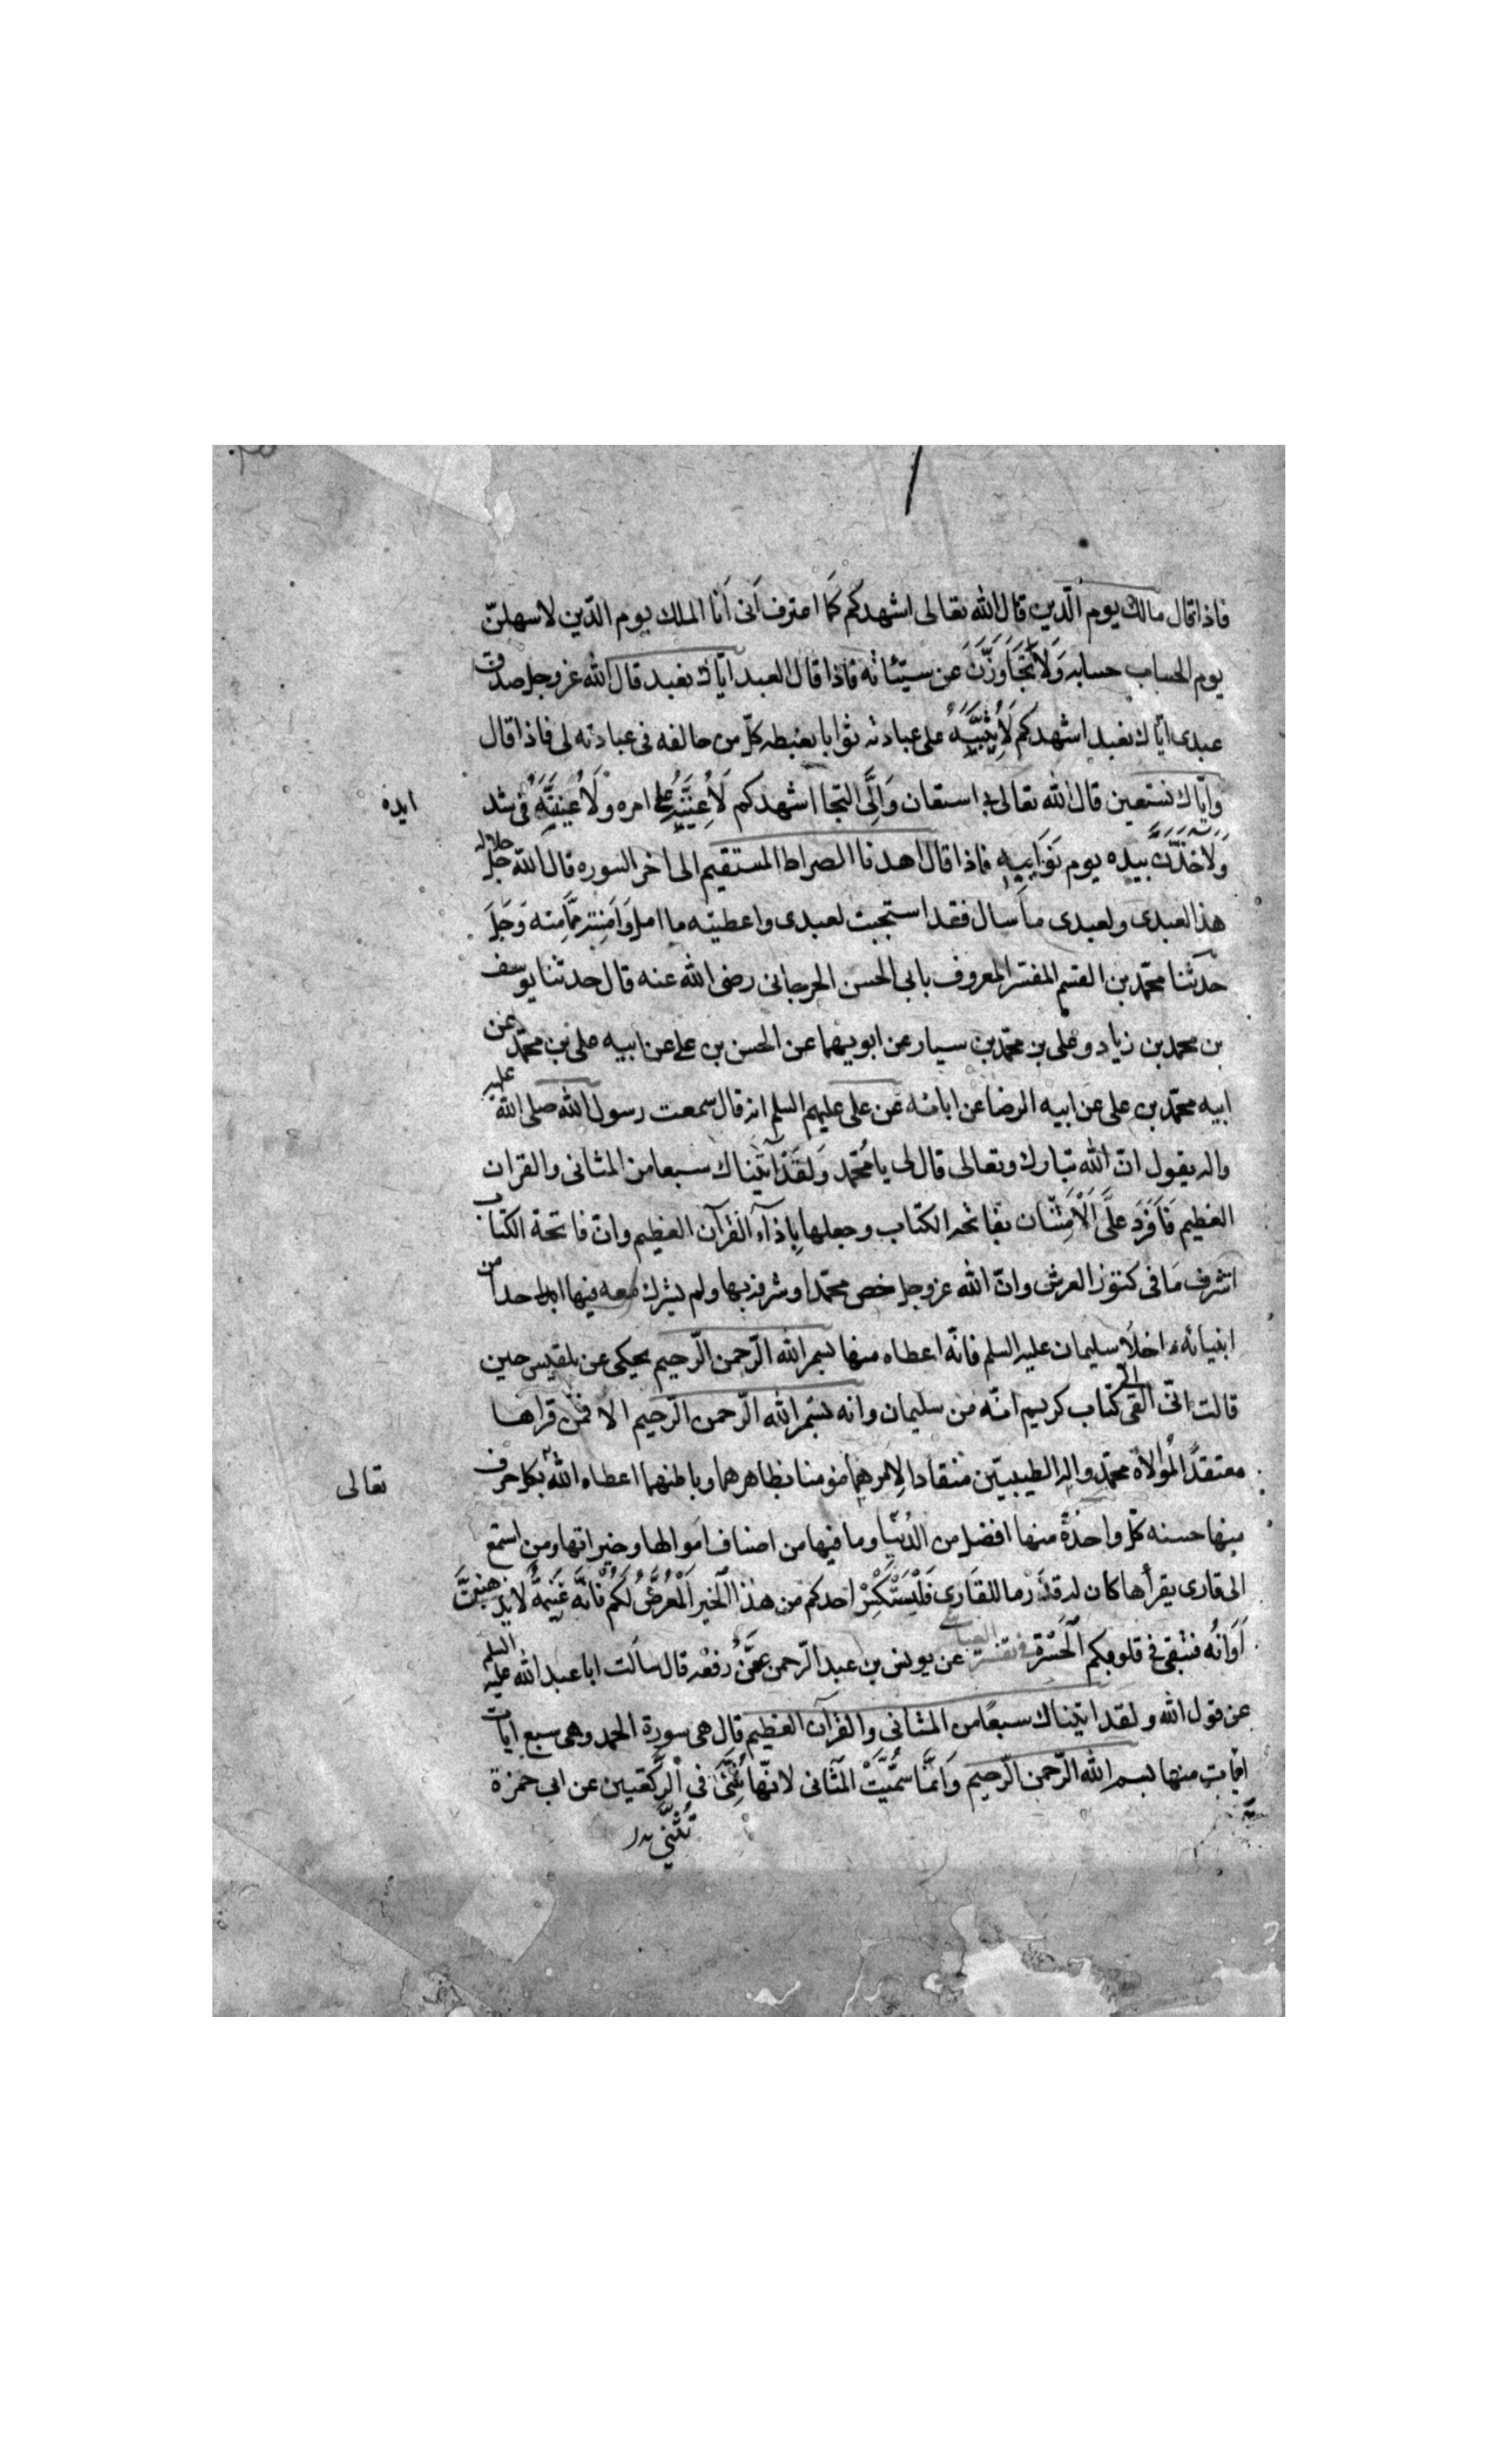 فاذا قال مالك يوم الدّين قال الله تعالى اشهدكم كما اعترف انى اَنا الملك يوم الدّين لاسهلنّ
يوم الحساب حسابه وَلَاَتَجَاوَزَنَّ عن سيّئاته فاذا قال العبد ايّاك نعبد قال الله عز وجل صدق
عبدى ايّاك نعبد اشهدكم لَاُثِيبَنَّهُ على عبادته ثوابا يغبطه كلّ من خالفه فى عبادته لى فاذا قال
وايّاك نستعين قال الله تعالى بى استعان وَاِلَىَّ التجا اشهدكم لَاُعِينَنَّهُ على امره ولَاُعِينَنَّهُ فى شد
ايده
وَلَاخذنّ بيده يوم نَوَائِبِهِ فاذا قال اهدنا الصراط المستقيم الى اخر السوره قال الله جلّ جلاله
هذا لعبدى ولعبدى ما سال فقد استجبت لعبدى واعطيته ما امل وَامنته ممّا منه وَجَلَ
حدّثنا محمّد بن القسم المفسّر المعروف بابى الحسن الجرجانى رضى الله عنه قال حدثنا يوسف
بن محمد بن زياد وعلى بن محمّد بن سيار عن ابويهما عن الحسن بن على عن ابيه على بن محمّد عن
ابيه محمّد بن على عن ابيه الرضا عن ابائه عن على عليهم السلم انه قال سمعت رسول الله صلى الله عليه
واله يقول انّ الله تبارك وتعالى قال لى يا محمّد وَلَقَدْ اتَيناك سبعا من المثانى والقران
العظيم فَاَفرَدَ علَىَّ الْاِمتنان بفاتحه الكتاب وجعلها بِازآء القرآن العظيم وانّ فاتحة الكتاب
اشرف مَا فى كنوز العرش وانّ الله عزوجل خص محمّدا وشرفه بها ولم يشرك معه فيها احدا من
انبيائه ما خلا سليمان عليه السلم فانّه اعطاه منها بسم الله الرّحمن الرّحيم يحكى عن بلقيس حين
قالت انّى القى الىّ كتاب كريم انّه من سليمان وانه بسم الله الرّحمن الرّحيم الا فمن قراها
معتقدًا لموالاة محمّد واله الطيبيّن منقادا لامرهما مؤمنا بظاهرهما وباطنهما اعطاه الله بكل حرف
تعالى
منها حسنه كلّ واحدةٌ منها افضل من الدُنيا وما فيها من اصناف اموالها وخيراتها ومن استمع
الى قارى يقرأها كان له قدر ما للقارى فَلْيَسْتَكْثِرْ احدكم من هذا الخير الْمُعْرَضِ لَكُمْ فانَّهُ غَنِيمَةٌ لا يذهبنَّ
اَوَانُه فتبقى فى قلوبكم الْحَسْرَة فى تفسير العياشى عن يونس بن عبد الرّحمن عمّن رفعه قال سالت ابا عبد الله عليه السلم
عن قول الله ولقد اتيناك سبعًا من المثانى والقرآن العظيم قال هى سورة الحمد وهى سبع ايات
ايات منها بسم الله الرّحمن الرّحيم وَانّما سمّيَتْ المثانى لانّها تُثَنَّى فى الرّكعتين عن ابى حمزة
تُثَنّى